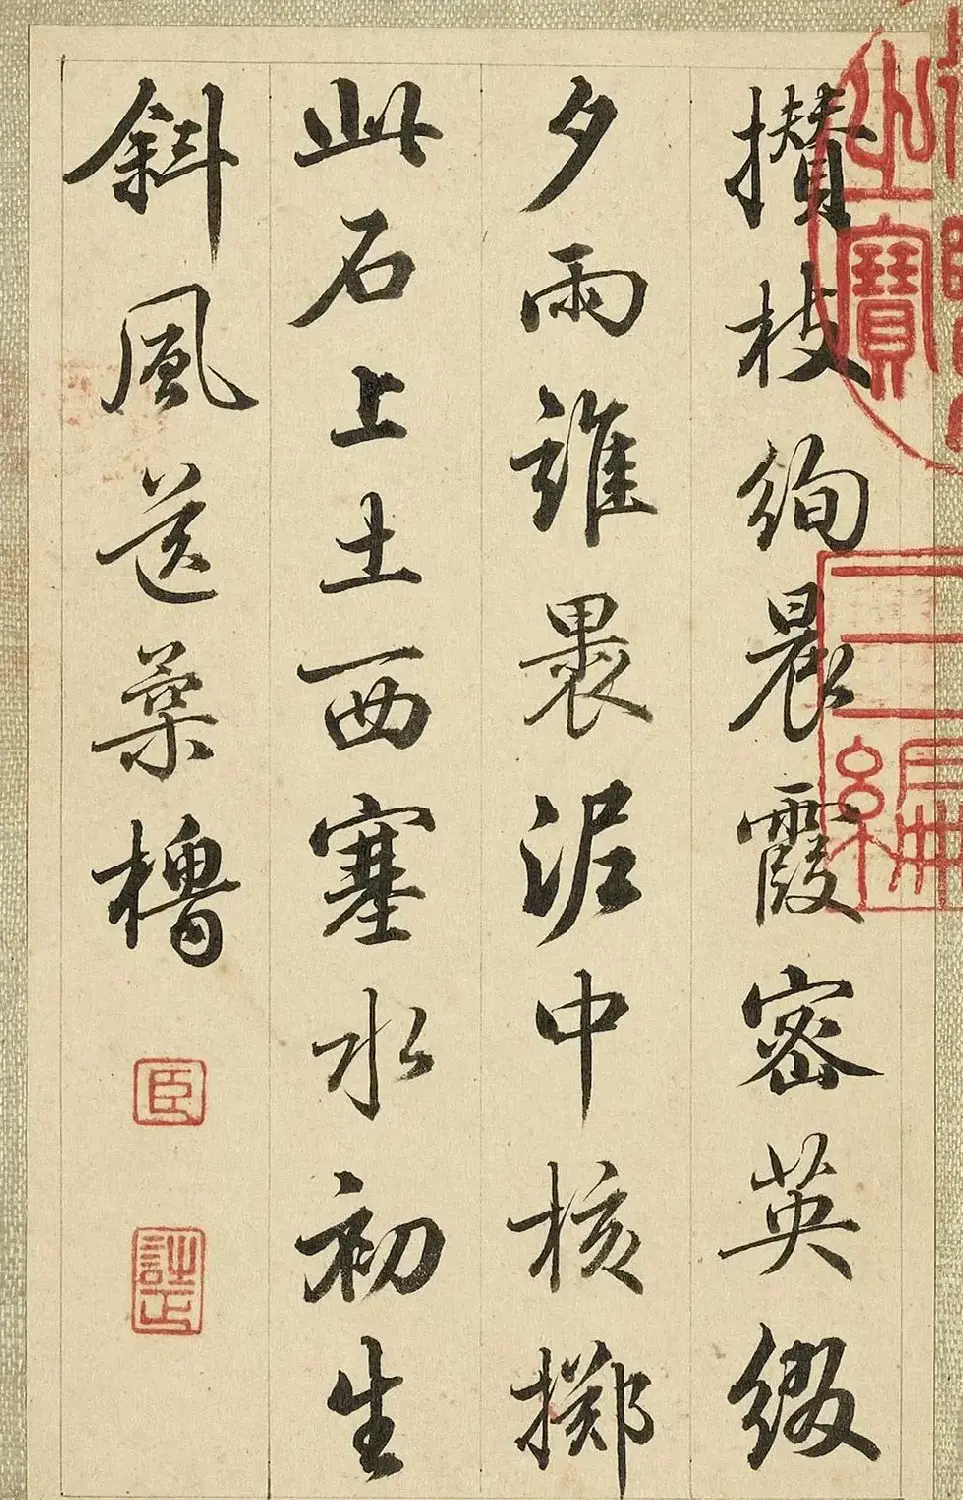 攢枝絢晨霞密英綴
夕雨誰褁泥中核擲
此石上土西塞水初生
斜風送櫓
臣
之寶
三編